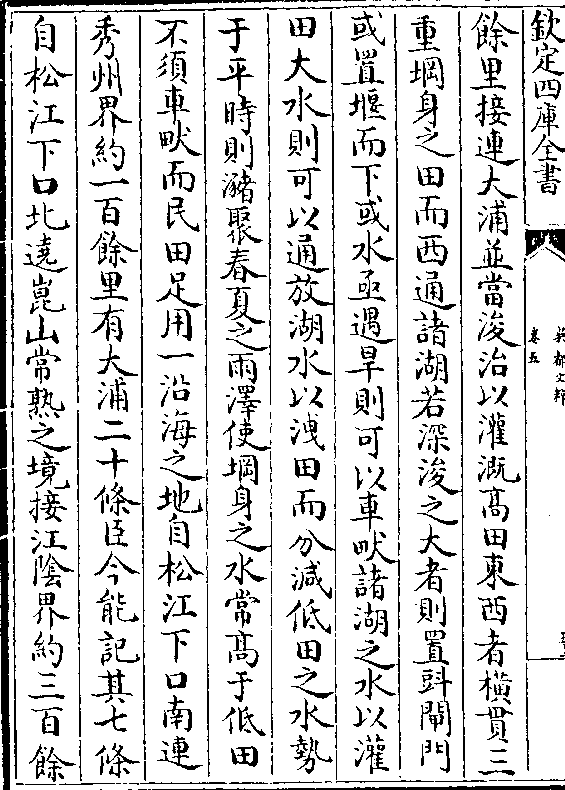 欽定四庫全書
吳都文粹
卷五
餘里接連大浦並當浚治以灌溉髙田東西者橫貫三
重堈身之田而西通諸湖若深浚之大者則置㪷閘門
或置堰而下或水函遇旱則可以車畎諸湖之水以灌
田大水則可以通放湖水以洩田而分減低田之水勢
于平時則瀦聚春夏之雨澤使堈身之水常髙于低田
不須車畎而民田足用一沿海之地自松江下口南連
秀州界約一百餘里有大浦二十條臣今能記其七條
自松江下口北遶崑山常熟之境接江陰界約三百餘